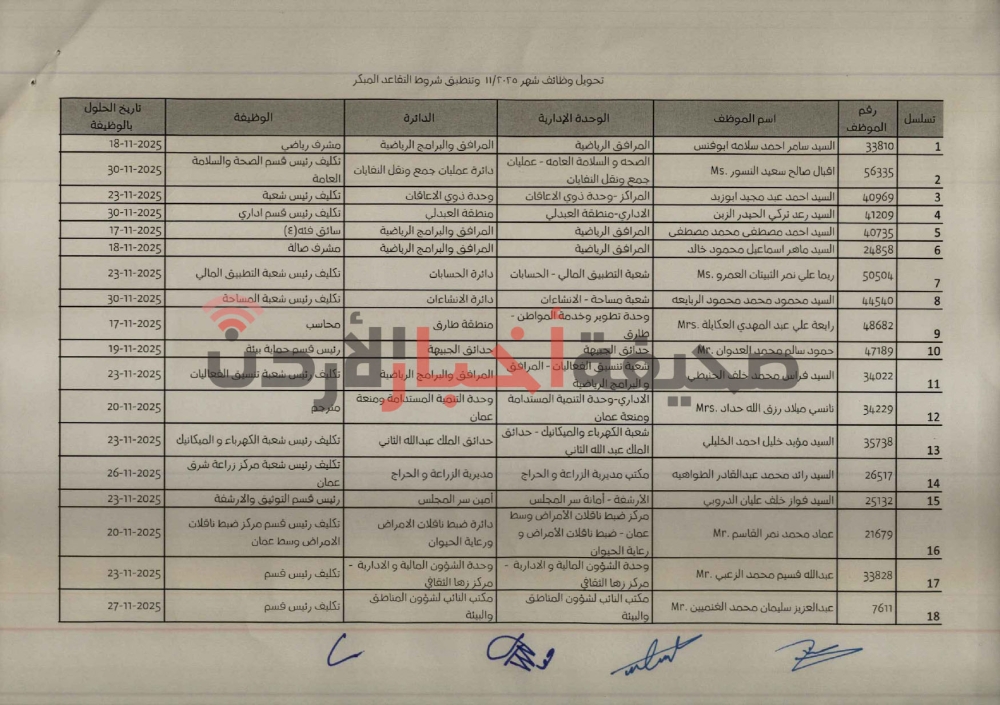 تحويل وظائف شهر ١١/٢٠٢٥ وتنطبق شروط التقاعد المبكر
تسلسل رقم الموظف اسم الموظف الوحدة الإدارية الدائرة الوظيفة تاريخ الحلول بالوظيفة
1 33810 السيد سامر احمد سلامه ابوفنس المرافق الرياضية المرافق والبرامج الرياضية مشرف رياضي 18-11-2025
2 56335 اقبال صالح سعيد النسور .Ms الصحه و السلامة العامه - عمليات جمع ونقل النفايات دائرة عمليات جمع ونقل النفايات تكليف رئيس قسم الصحة والسلامة العامة 30-11-2025
3 40969 السيد احمد عبد مجيد ابوزيد المراكز -وحدة ذوي الاعاقات وحدة ذوي الاعاقات تكليف رئيس شعبة 23-11-2025
4 41209 السيد رعد تركي الحيدر الزبن الاداري-منطقة العبدلي منطقة العبدلي تكليف رئيس قسم اداري 30-11-2025
5 40735 السيد احمد مصطفى محمد مصطفى المرافق الرياضية المرافق والبرامج الرياضية سائق فئه(٤) 17-11-2025
6 24858 السيد ماهر اسماعيل محمود خالد المرافق الرياضية المرافق والبرامج الرياضية مشرف صالة 18-11-2025
7 50504 ريما علي نمر الثبيتات العمرو .Ms شعبة التطبيق المالي - الحسابات دائرة الحسابات تكليف رئيس شعبة التطبيق المالي 23-11-2025
8 44540 السيد محمود محمد محمود الربايعه شعبة مساحة - الانشاءات دائرة الانشاءات تكليف رئيس شعبة المساحة 30-11-2025
9 48682 رابعة علي عبد المهدي العكايلة .Mrs وحدة تطوير وخدمة المواطن - طارق منطقة طارق محاسب 17-11-2025
10 47189 حمود سالم محمد العدوان .Mr حدائق الجبيهة حدائق الجبيهة رئيس قسم حماية بيئة 19-11-2025
11 34022 السيد فراس محمد خلف الحنيطي شعبة تنسيق الفعاليات - المرافق والبرامج الرياضية المرافق والبرامج الرياضية تكليف رئيس شعبة تنسيق الفعاليات 23-11-2025
12 34229 نانسي ميلاد رزق الله حداد .Mrs الاداري-وحدة التنمية المستدامة ومنعة عمان وحدة التنمية المستدامة ومنعة عمان مترجم 20-11-2025
13 35738 السيد مؤيد خليل احمد الخليلي شعبة الكهرباء والميكانيك - حدائق الملك عبد الله الثاني حدائق الملك عبدالله الثاني تكليف رئيس شعبة الكهرباء و الميكانيك 23-11-2025
14 26517 السيد رائد محمد عبدالقادر الطواهيه مكتب مديرية الزراعة و الحراج مديرية الزراعة و الحراج تكليف رئيس شعبة مركز زراعة شرق عمان 26-11-2025
15 25132 السيد فواز خلف عليان الدروبي الأرشفة - أمانة سر المجلس أمين سر المجلس رئيس قسم التوثيق والارشفة 23-11-2025
16 21679 عماد محمد نمر القاسم .Mr مركز ضبط ناقلات الأمراض وسط عمان - ضبط ناقلات الأمراض و رعاية الحيوان دائرة ضبط ناقلات الامراض ورعاية الحيوان تكليف رئيس قسم مركز ضبط ناقلات الامراض وسط عمان 20-11-2025
17 33828 عبدالله قسيم محمد الزعبي .Mr وحدة الشؤون المالية و الادارية - مركز زها الثقافي وحدة الشؤون المالية و الادارية - مركز زها الثقافي تكليف رئيس قسم 23-11-2025
18 7611 عبدالعزيز سليمان محمد الغنميين .Mr مكتب النائب لشؤون المناطق والبيئة مكتب النائب لشؤون المناطق والبيئة تكليف رئيس قسم 27-11-2025
صحيفة أخبار الأردن